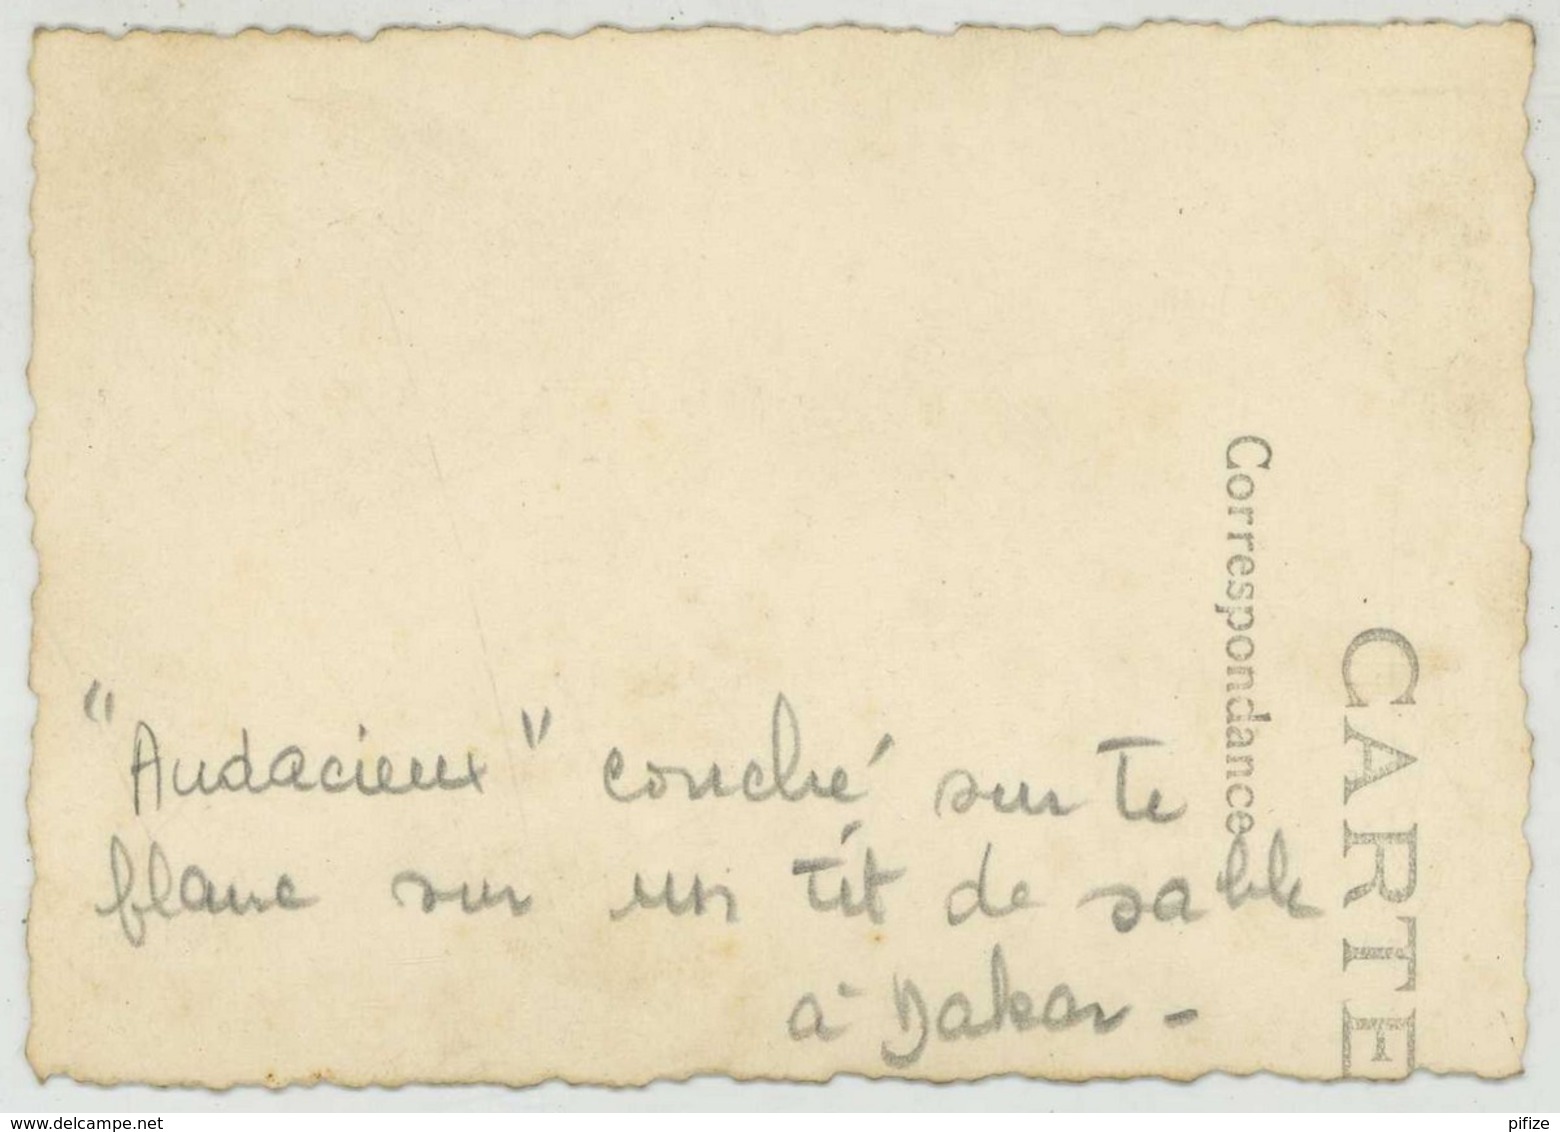 "Audacieux" couché sur te
flanc sur un tit de sable
à Dakar -
Correspondance
CARTE
www.delcampe.net
pifize